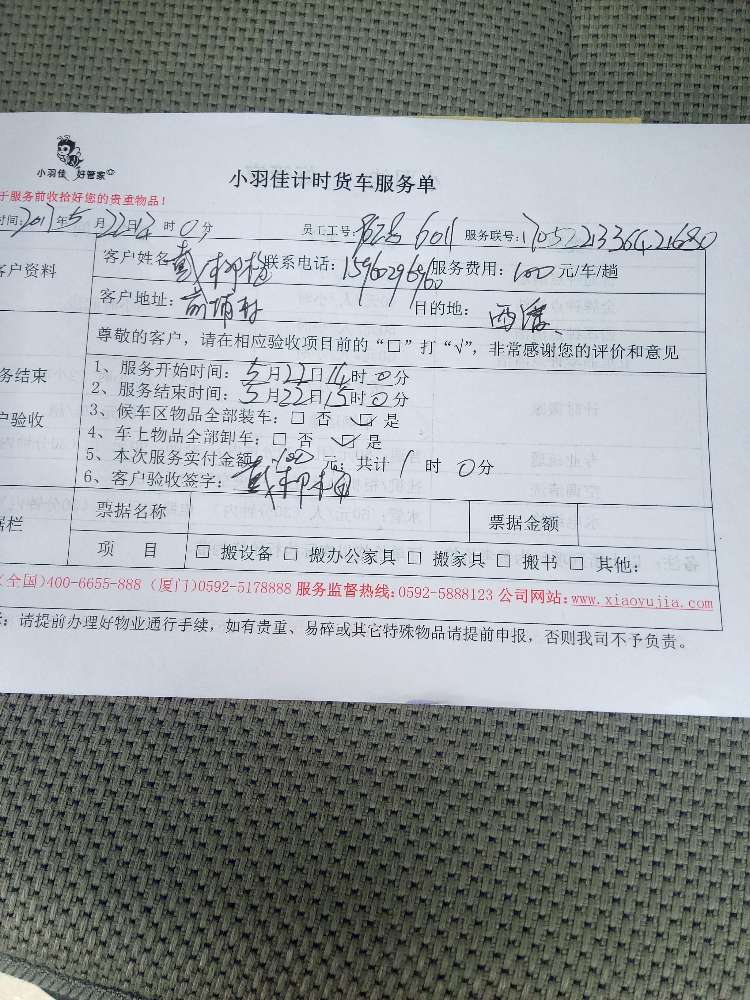 小羽佳 好管家
小羽佳计时货车服务单
于服务前收拾好您的贵重物品！
时间：2017年5月22日12时0分 员工工号： 6011 服务联号：
客户资料
客户姓名： 联系电话：15960296960 服务费用：100元/车/趟
客户地址：前埔村 目的地：
尊敬的客户，请在相应验收项目前的“□”打“√”，非常感谢您的评价和意见
务结束
户验收
1、服务开始时间：5月22日14时0分
2、服务结束时间：5月22日15时0分
3、候车区物品全部装车：□ 否 ☑ 是
4、车上物品全部卸车：□ 否 ☑ 是
5、本次服务实付金额：100元；共计1时0分
6、客户验收签字：
据栏
票据名称 票据金额
项 目 □ 搬设备 □ 搬办公家具 □ 搬家具 □ 搬书 □ 其他：
(全国)400-6655-888 (厦门)0592-5178888 服务监督热线：0592-5888123 公司网站：www.xiaoyujia.com
：请提前办理好物业通行手续，如有贵重、易碎或其它特殊物品请提前申报，否则我司不予负责。